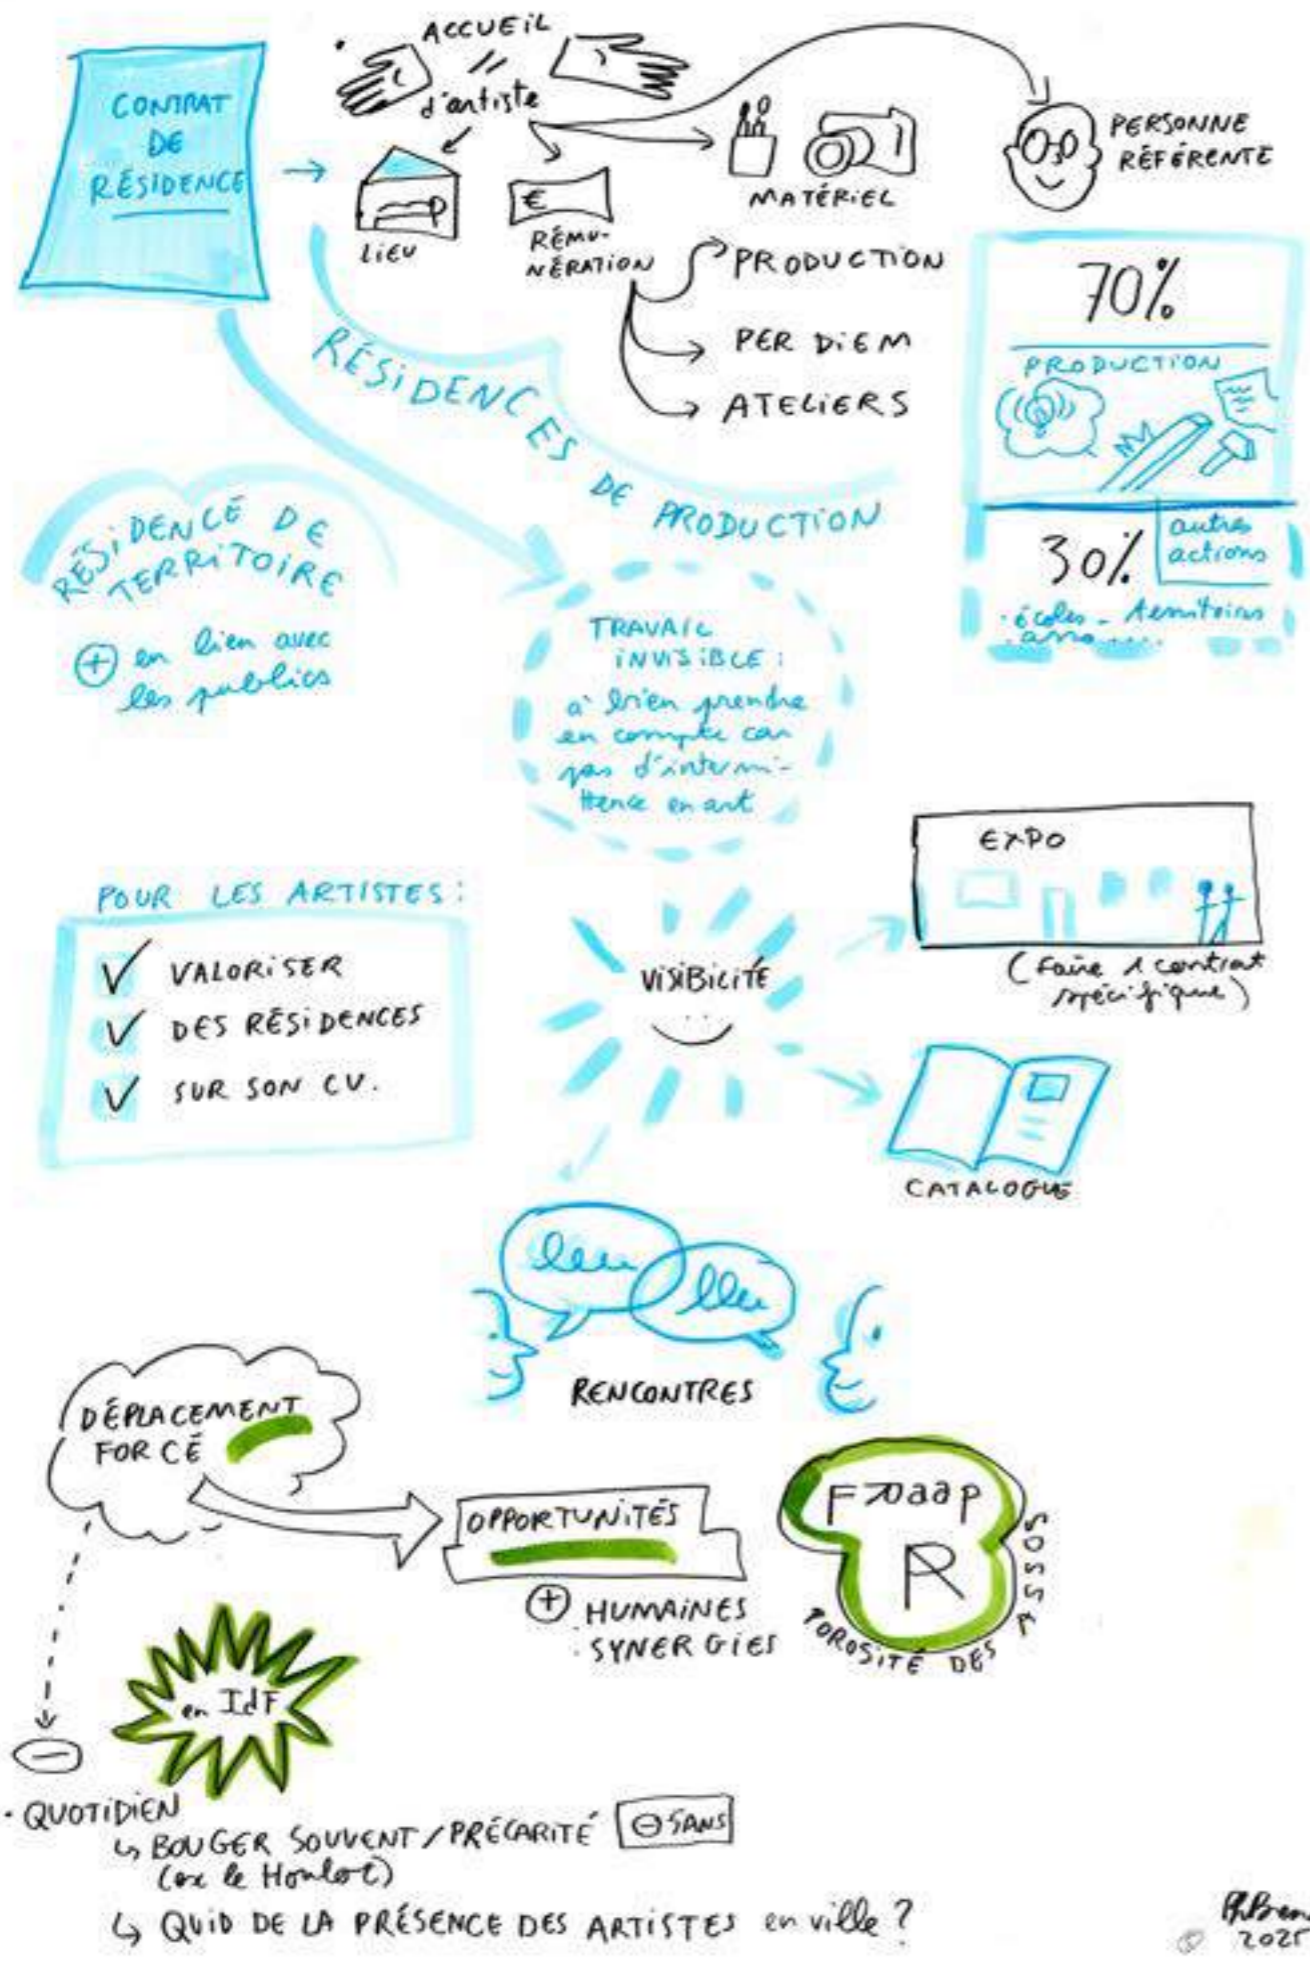 CONTRAT
DE
RÉSIDENCE
ACCUEIL
d'artiste
LIEU
€
RÉMU-
NÉRATION
MATÉRIEL
PERSONNE
RÉFÉRENTE
PRODUCTION
PER DIEM
ATELIERS
70%
PRODUCTION
30%
autres
actions
écoles - territoires
asso....
RÉSIDENCES DE PRODUCTION
RÉSIDENCE DE
TERRITOIRE
+ en lien avec
les publics
TRAVAIL
INVISIBLE :
à bien prendre
en compte car
pas d'intermi-
ttence en art
POUR LES ARTISTES :
VALORISER
DES RÉSIDENCES
SUR SON CV.
VISIBILITÉ
EXPO
(faire 1 contrat
spécifique)
CATALOGUE
RENCONTRES
DÉPLACEMENT
FORCÉ
OPPORTUNITÉS
+ HUMAINES
. SYNERGIES
Fraap
R
POROSITÉ DES ASSOS
en IdF
-
· QUOTIDIEN
↳ BOUGER SOUVENT / PRÉCARITÉ
⊖ SANS
(ex le Houloc)
↳ QUID DE LA PRÉSENCE DES ARTISTES en ville ?
2025